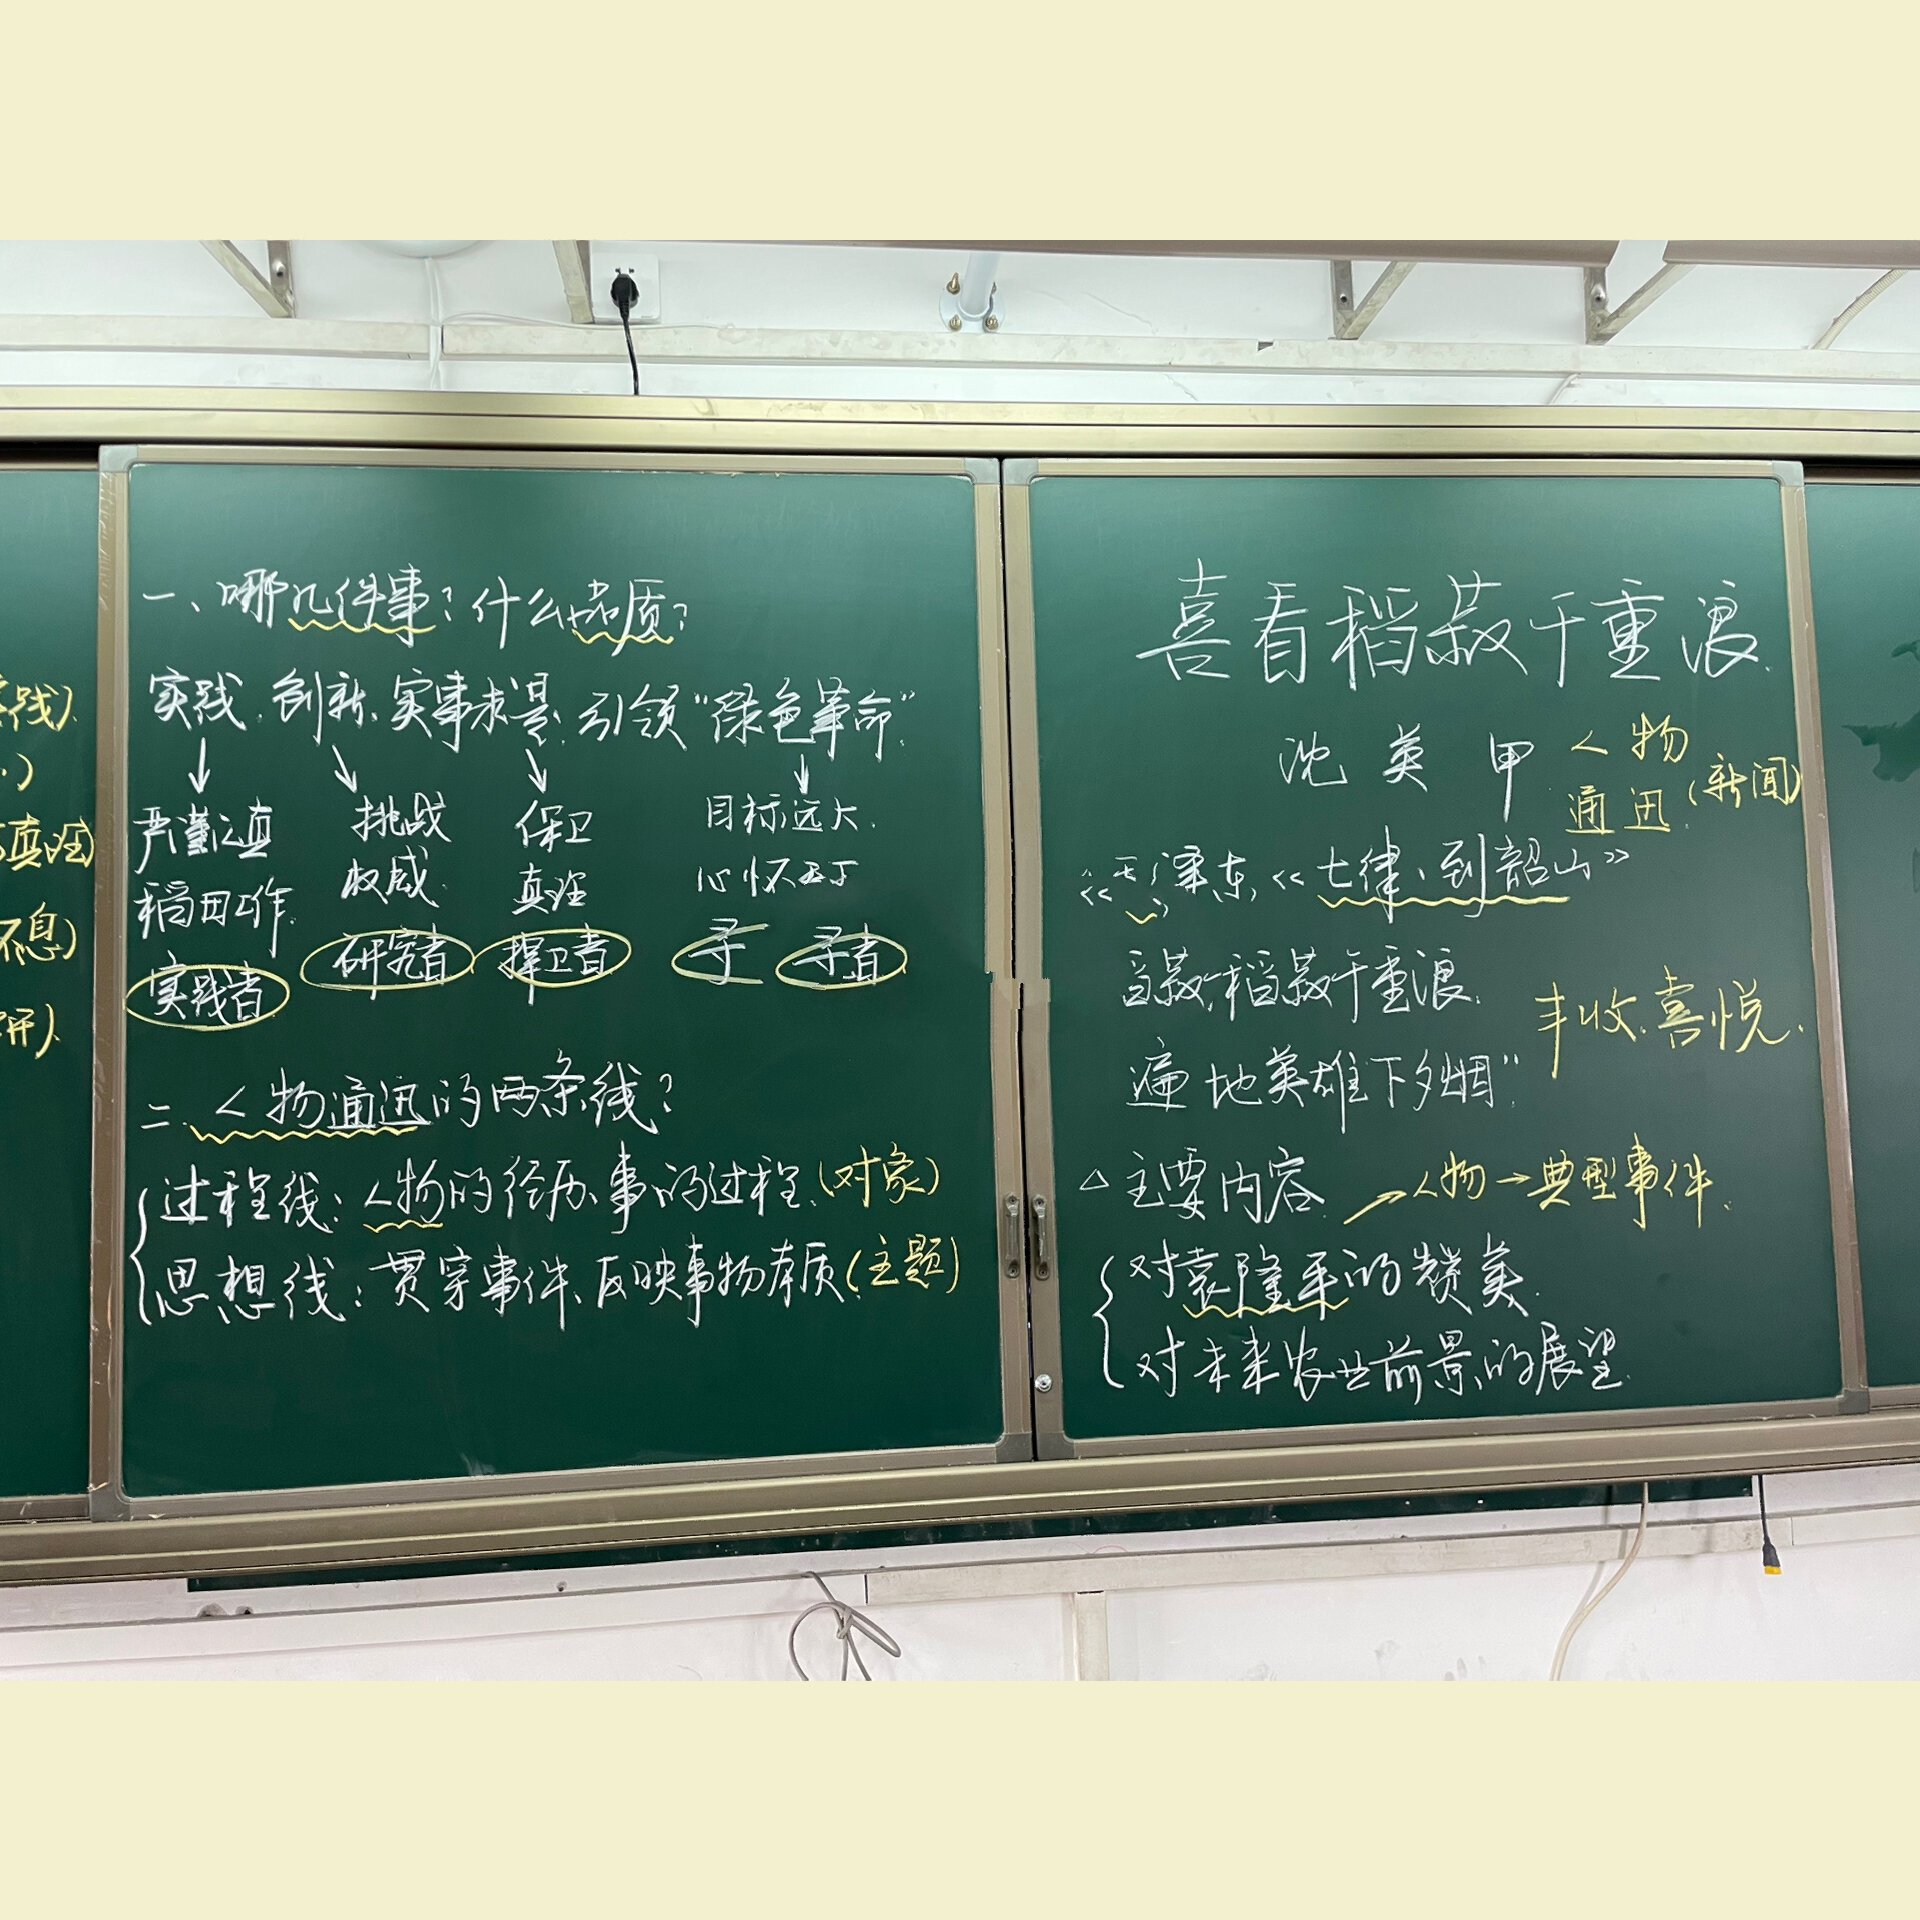 线)
真理)
不息)
一、哪几件事?什么品质?
实践、创新、实事求是、引领“绿色革命”
严谨认真 挑战 保卫 目标远大
稻田工作 权威 真理 心怀天下
实践者 研究者 捍卫者
二、人物通迅的两条线?
过程线:人物的经历、事的过程(对象)
思想线:贯穿事件、反映事物本质(主题)
喜看稻菽千重浪
沈英甲 人物
通迅(新闻)
毛泽东《七律·到韶山》
喜看稻菽千重浪 丰收、喜悦
遍地英雄下夕烟”
△主要内容 → 人物→典型事件
对袁隆平的赞美
对未来农业前景的展望